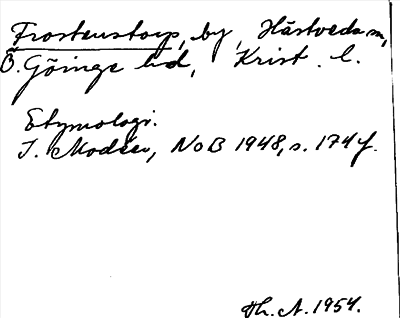 Frostenstorp, by, Hästveda sn,
Ö. Göinge hd, Krist. l.
Etymologi.
I. Modéer, NoB 1948, s. 174 f.
Th. A. 1954.